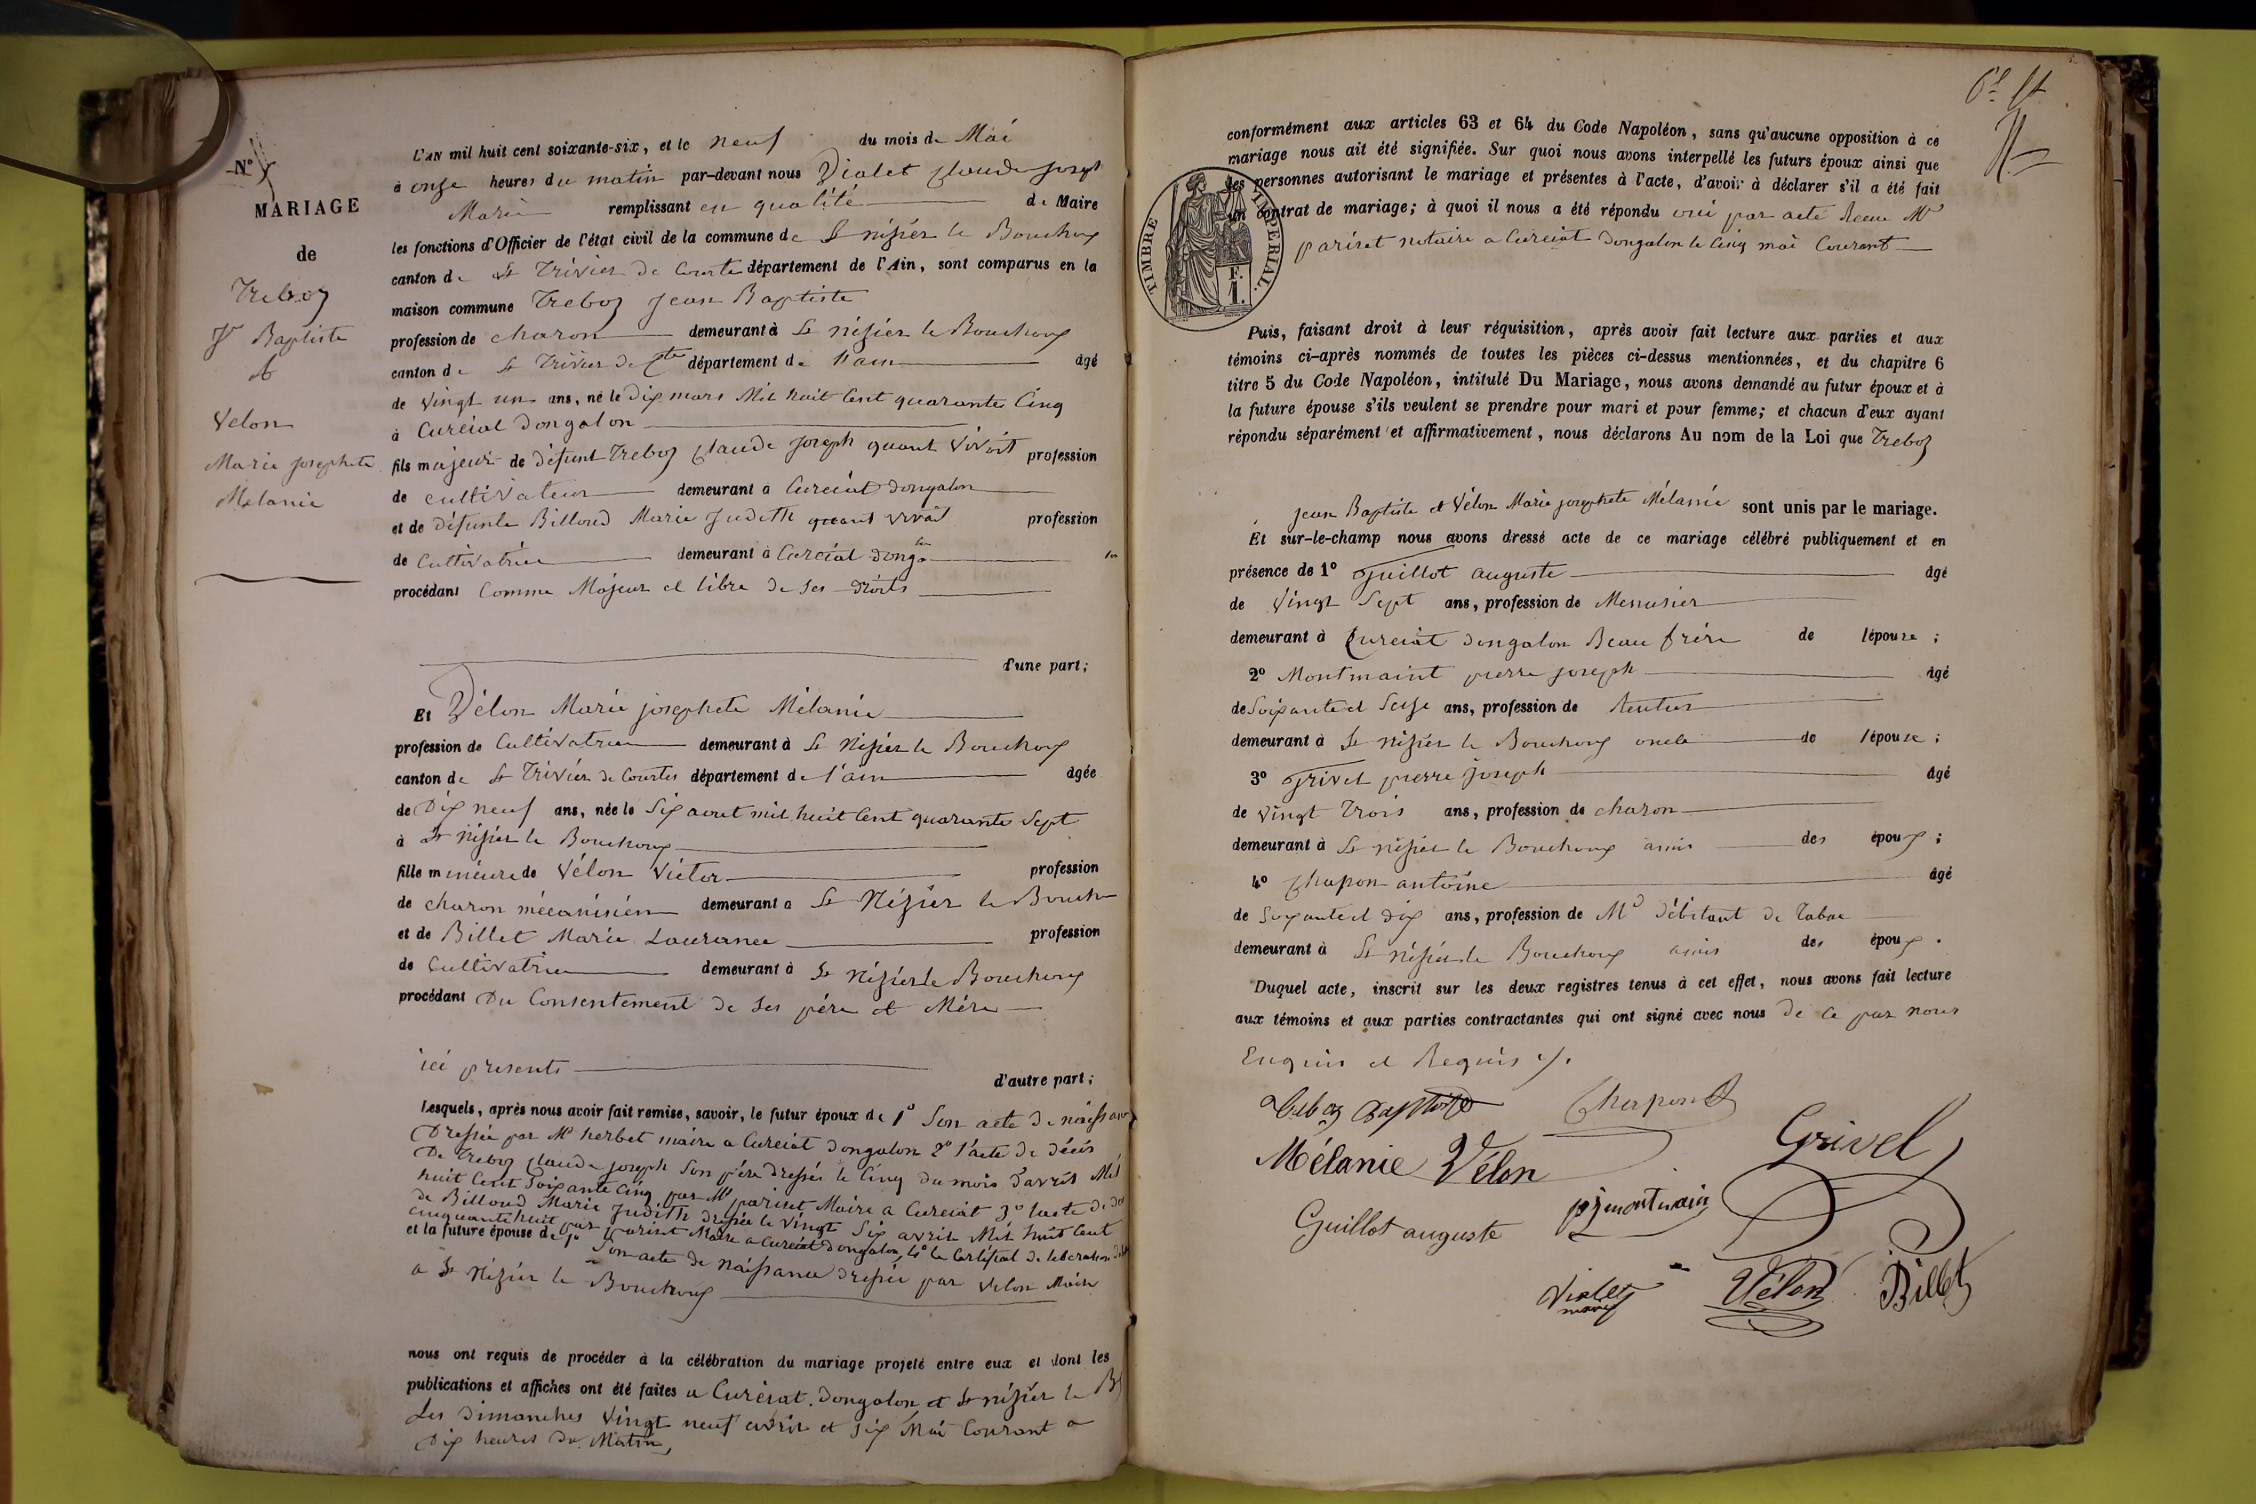 N°
MARIAGE
de
Treboz
Jn Baptiste
et
Vélon
Marie josephete
Mélanie
L'AN mil huit cent soixante-six, et le neuf du mois de Mai
à onze heures du matin par-devant nous Violet Claude joseph
Marie remplissant en qualité de Maire
les fonctions d'Officier de l'état civil de la commune de St nizier le Bouchoux
canton de St Trivier de Courtes département de l'Ain, sont comparus en la
maison commune Treboz Jean Baptiste
profession de charon demeurant à St nizier le Bouchoux
canton de St Trivier de Ctes département de l'ain âgé
de vingt un ans, né le Dix mars Mil huit Cent quarante Cinq
à Curciat Dongalon
fils majeur de défunt Treboz Claude joseph quant vivait profession
de cultivateur demeurant à Curciat Dongalon
et de défunte Billoud Marie Judith quant vivait profession
de Cultivatrice demeurant à Curciat donga lon
procédant Comme Majeur et libre de ses droits
d'une part;
Et Vélon Marie josephete Mélanie
profession de Cultivatrice demeurant à St Nizier le Bouchoux
canton de St Trivier de Courtes département de l'ain âgée
de Dix neuf ans, née le Six aout mil huit Cent quarante Sept
à St Nizier le Bouchoux
fille mineure de Vélon Victor profession
de charon mécanisien demeurant a St Nizier le Bouch
et de Billet Marie Laurance profession
de Cultivatrice demeurant à St Nizier le Bouchoux
procédant Du Consentement de Ses pére et Mére
ici présents
d'autre part;
Lesquels, après nous avoir fait remise, savoir, le futur époux de 1° Son acte de naissan
Dressée par Mr herbet maire a Curciat Dongalon 2° l'acte de décés
De Treboz Claude joseph Son pére dressés le Cinq du mois d'avril Mil
huit Cent Soixante Cinq par Mr pariset Maire a Curciat 3° lacte de de
de Billoud Marie Judith dressée le vingt Six avril Mil huit Cent
cinquante huit par pariset Maire a Curciat Dongalon, 4° le Certificat de liberation
et la future épouse de 1° Son acte de Naissance dressée par Vélon Maire
a St Nizier le Bouchoux
nous ont requis de procéder à la célébration du mariage projeté entre eux et dont les
publications et affiches ont été faites a Curciat Dongalon et St nizier le B
Les Dimanches Vingt neuf avril et Six Mai Courant a
Dix heures du Matin,
conformément aux articles 63 et 64 du Code Napoléon, sans qu'aucune opposition à ce
mariage nous ait été signifiée. Sur quoi nous avons interpellé les futurs époux ainsi que
les personnes autorisant le mariage et présentes à l'acte, d'avoir à déclarer s'il a été fait
un contrat de mariage; à quoi il nous a été répondu oui par acte Recu Mr
pariset notaire a Curciat Dongalon le Cinq mai Courant
TIMBRE IMPERIAL.
F.
1.
Puis, faisant droit à leur réquisition, après avoir fait lecture aux parties et aux
témoins ci-après nommés de toutes les pièces ci-dessus mentionnées, et du chapitre 6
titre 5 du Code Napoléon, intitulé Du Mariage, nous avons demandé au futur époux et à
la future épouse s'ils veulent se prendre pour mari et pour femme; et chacun d'eux ayant
répondu séparément et affirmativement, nous déclarons Au nom de la Loi que Treboz
Jean Baptiste et Vélon Marie josephete Mélanie sont unis par le mariage.
Et sur-le-champ nous avons dressé acte de ce mariage célébré publiquement et en
présence de 1° Guillot auguste âgé
de Vingt Sept ans, profession de Menusier
demeurant à Curciat Dongalon Beau frére de l'épouse;
2° Montmaint pierre joseph âgé
de Soixante et Seize ans, profession de Rentier
demeurant à St nizier le Bouchoux oncle de l'épouse;
3° Grivel pierre joseph âgé
de vingt Trois ans, profession de charon
demeurant à St nizier le Bouchoux amis des époux;
4° Chapon antoine âgé
de Soixante et dix ans, profession de Md Débitant de Tabac
demeurant à St nizier le Bouchoux amis des époux.
Duquel acte, inscrit sur les deux registres tenus à cet effet, nous avons fait lecture
aux témoins et aux parties contractantes qui ont signé avec nous de ce par nous
Enquis et Requis ./.
Treboz Baptiste Chapon
Mélanie Vélon Grivel
Guillot auguste pjmontmain
Violet maire Vélon Billet